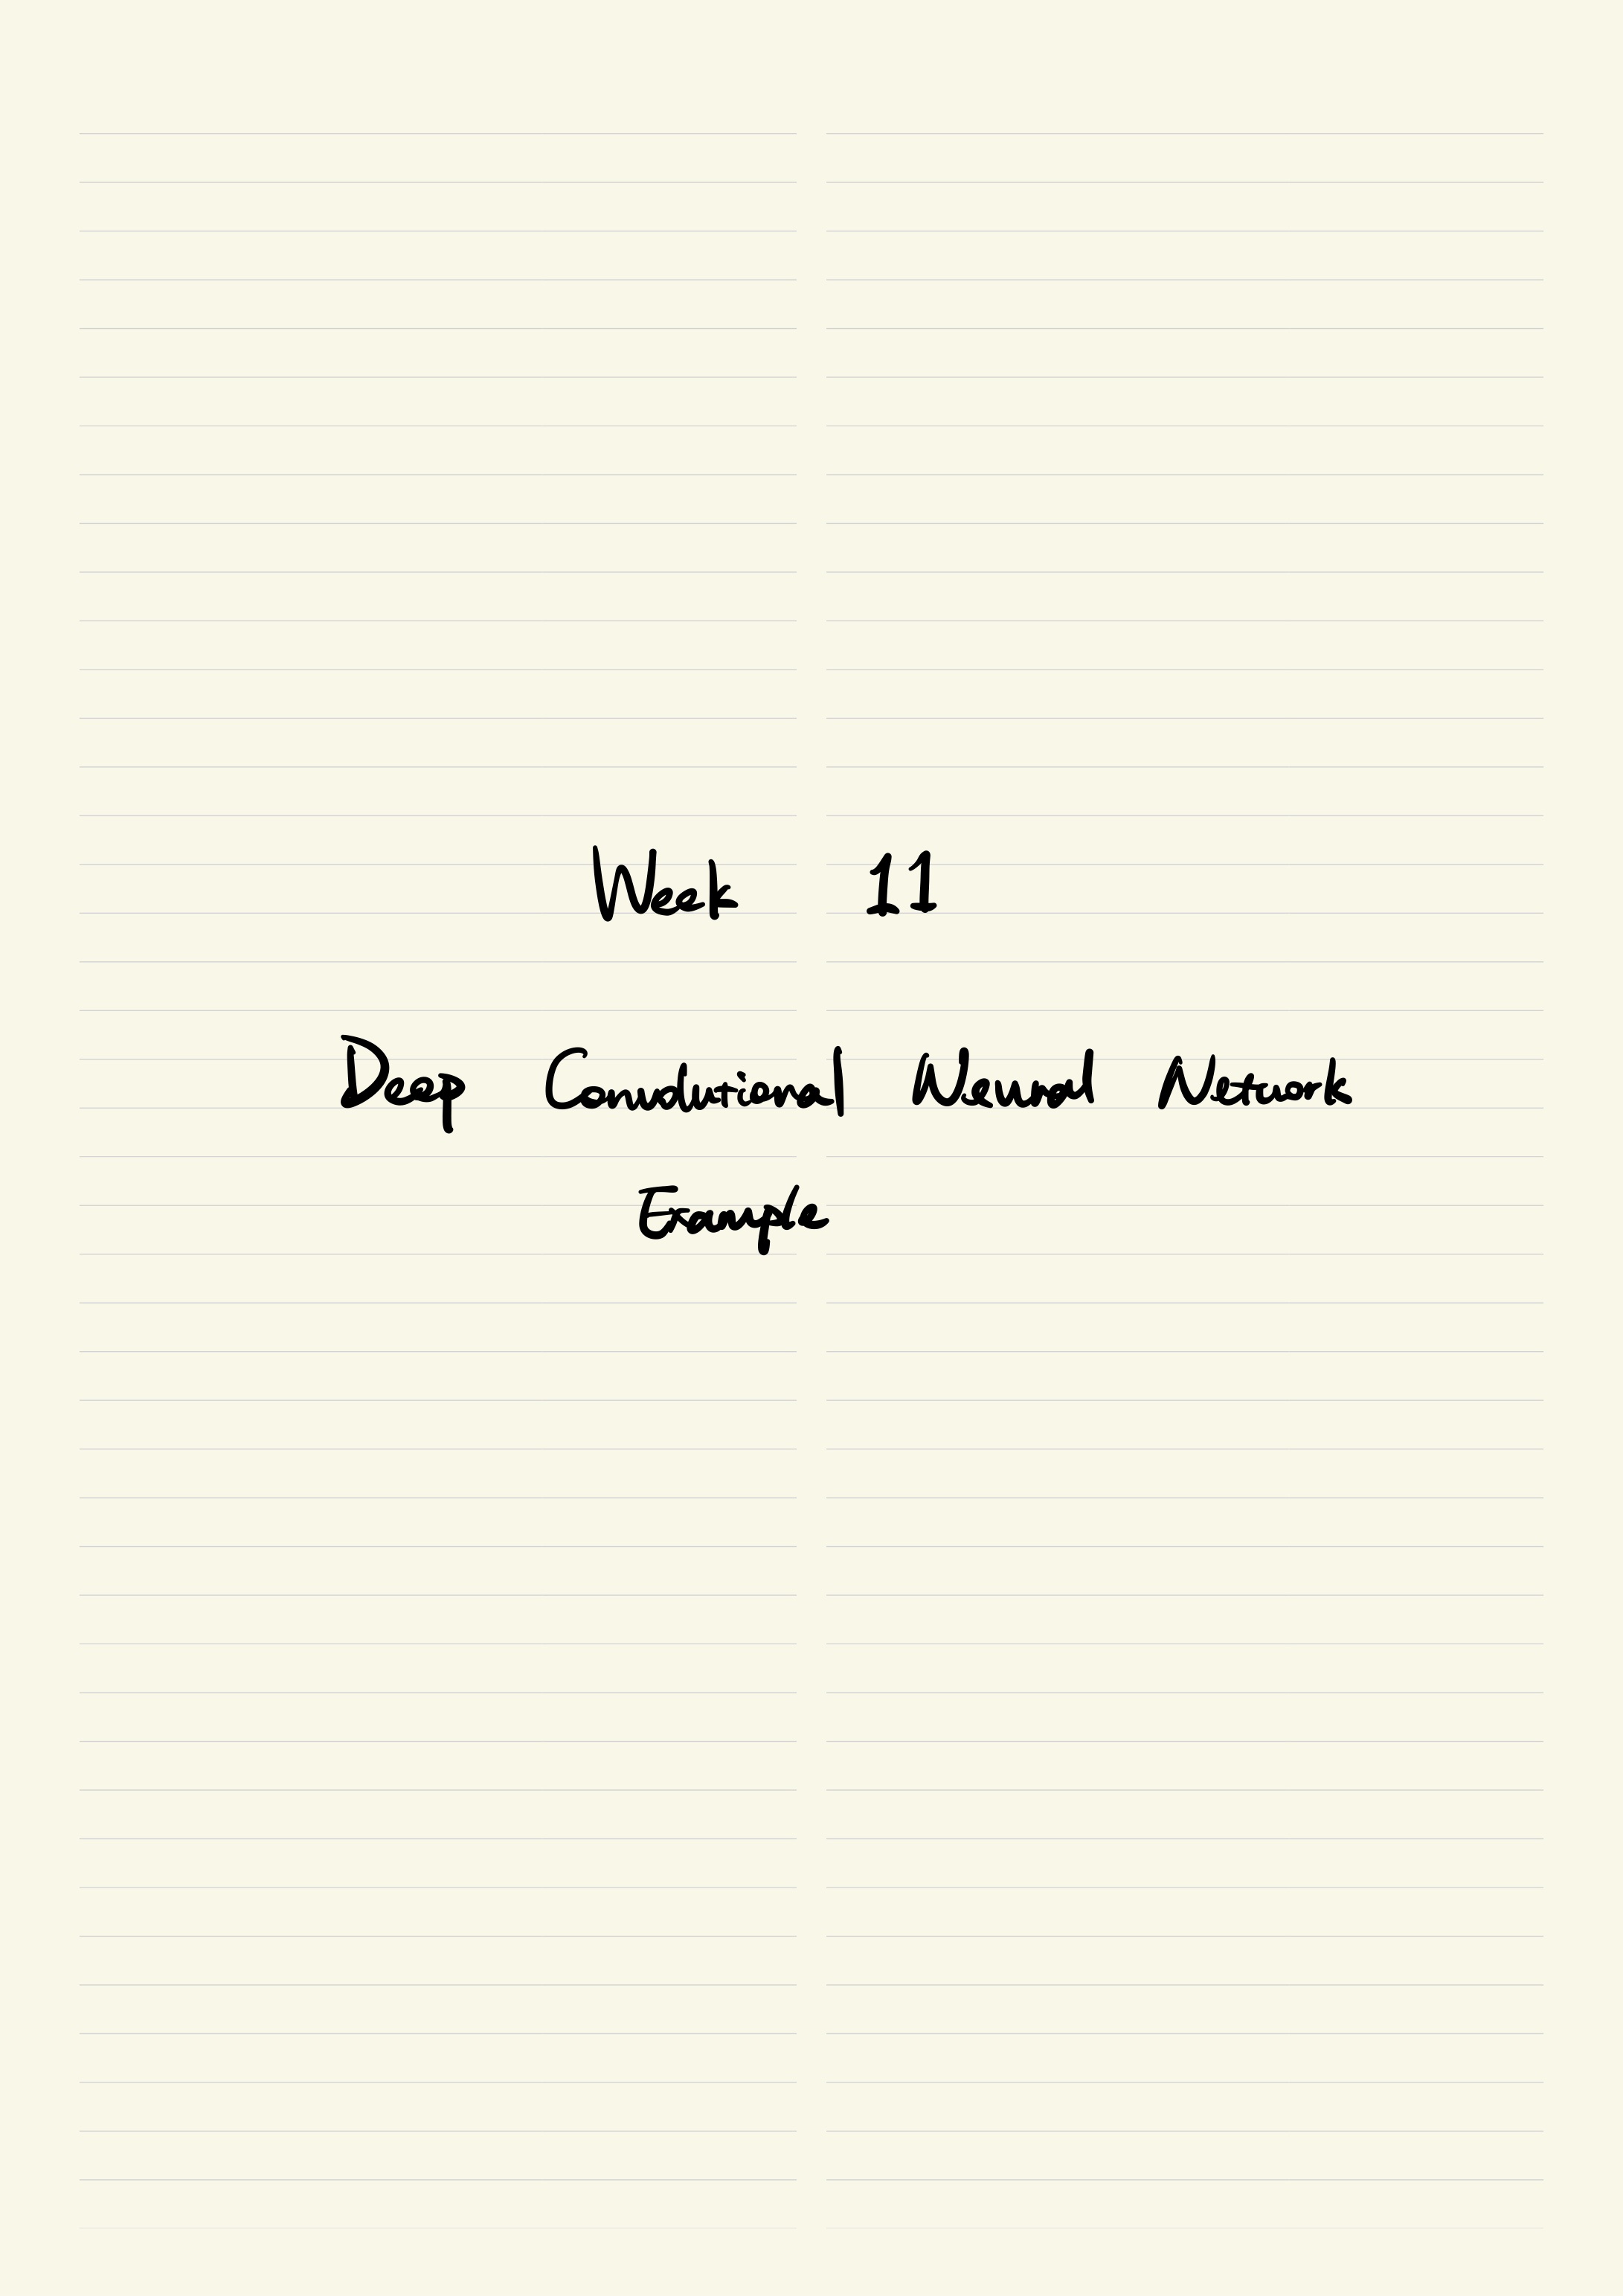 Week 11
Deep Convolutional Neural Network
Example